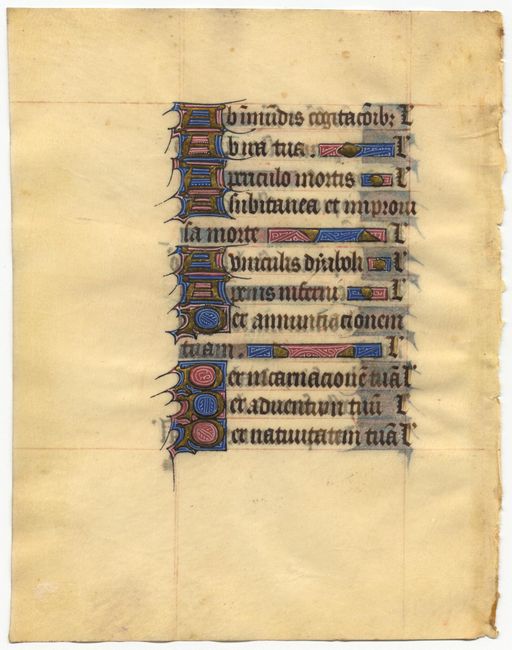 Ab inmũdis cogitacõib; L'
Ab ira tua. L'
A periculo mortis L'
A subitanea et improui
sa morte L'
A vinculis dyaboli L'
A penis inferni L'
Per annunciacionem
tuam. L'
Per incarnacionẽ tuã L'
Per aduentum tuũ L'
Per natiuitatem tuã L'